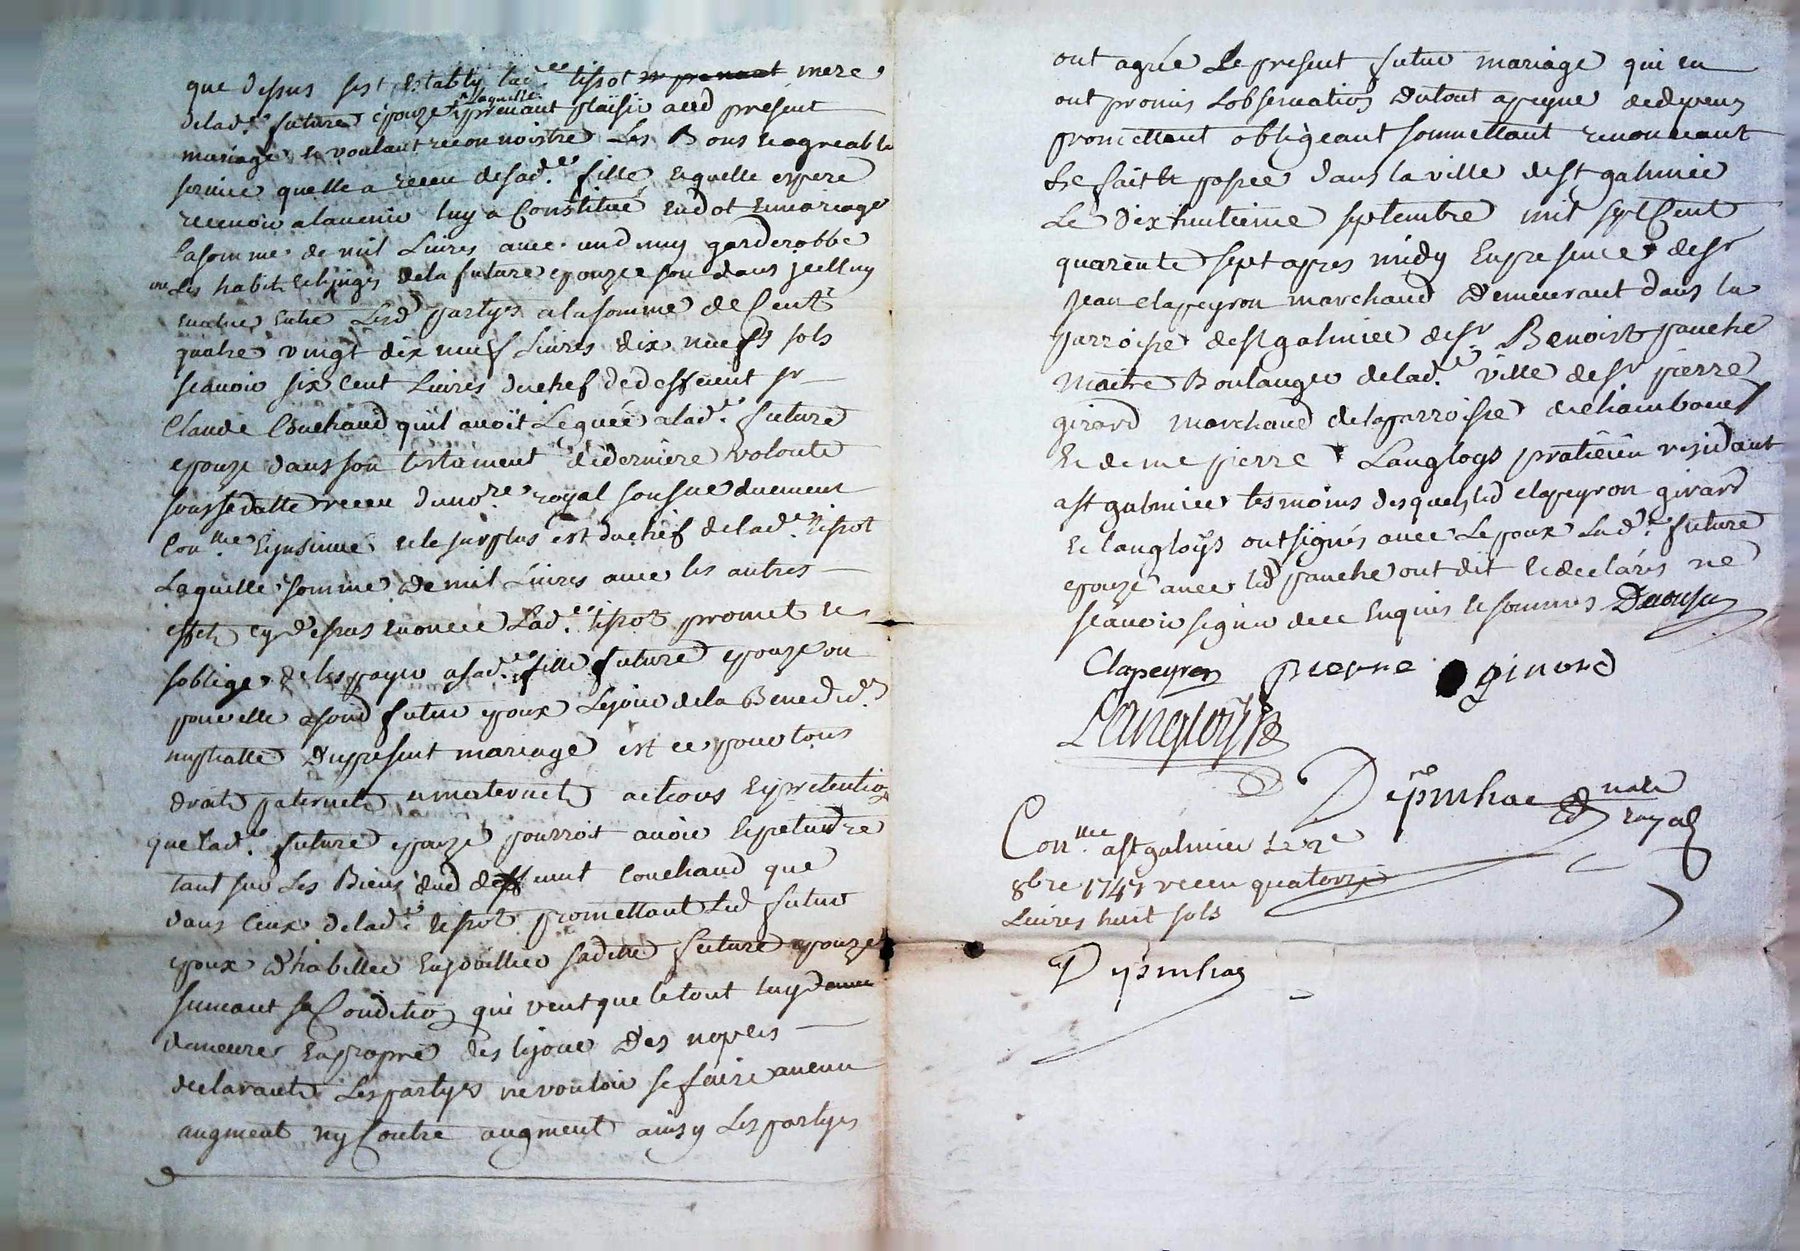 que dessus s'est establi lad.e tissot mere
laquelle
delad.e future épouze prenant plaisir aud présent
mariage et voulant reconnoistre les Bons et agreable
service quelle a receu de sad.e fille et quelle espere
recevoir alavenir luy a Constitué en dot et mariage
la somme de mil Livres avec
garderobbe
les habit et linges de la future epouze son dans icelluy
entre Lesd partyes a la somme de Cent
quatre vingt dix neuf Livres dix neufs sols
scavoir six Cent Livres du chef de deffeunt sr
Claude Couchaud qu'il avoit Leguée a lad.e future
epouze dans son testament de derniere volonté
receu du no.re royal soussigné duement
Con.lle et insinué et le surplus est du chef de lad.e tissot
Laquelle somme de mil Livres avec les autres
effets cy dessus enoncée Lad.e tissot promet et
s'oblige de les payer a sad.e fille future epouze ou
pour elle a sond futur epoux le jour de la Bened.on
nuptialle du present mariage et ce pour tous
droits paternels et maternels actions et pretentions
que lad.e future epouze pourroit avoir et pretendre
tant sur Les Biens dud deffeunt Couchaud que
dans Ceux de lad.e tissot promettant Led futur
epoux d'habiller Enjoüiller saditte future epouze
suivant sa Condition qui veut que le tout luy
demeure En propre des le jour des nopces
declarants Les partyes ne vouloir se faire aucun
augment ny Contre augment ainsy Les partyes
ont agrée Le present futur mariage qui en
ont promis Lobservation du tout a peyne de depens
promettant obligeant sommettant renonceant
&c fait et passée dans la ville de St galmier
Le dix huitieme septembre mil sept Cent
quarente sept apres midy En presence de sr
Jean Clapeyron marchand Demeurant dans la
parroisse de St galmier de sr Benoist pauche
Maitre Boulanger de lad.e ville de sr pierre
girard marchand de la parroisse de chambœuf
Et de me pierre Langloys praticien residant
a St galmier tesmoins desquels led Clapeyron girard
et langloys ont signés avec Lepoux Lad.e future
epouze avec led pauche ont dit et declarés ne
scavoir signer de ce Enquis et sommes
Clapeyron pierre girard
Langloys
royal
Con.lle a St galmier Le 2e
8bre 1747 receu quatorze
Livres huit sols